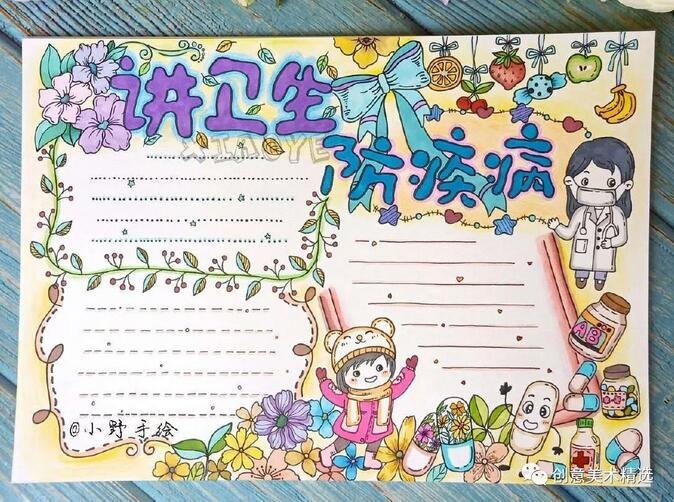 讲卫生
XIAOYE
防疾病
AB
@小野手绘
创意美术精选